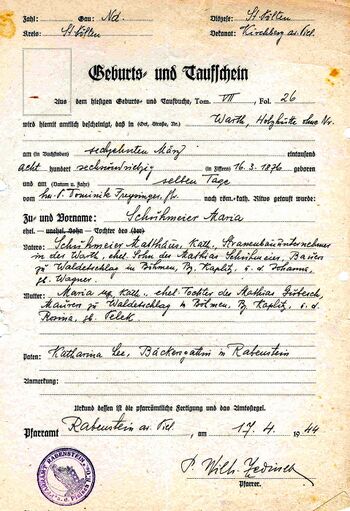 Zahl: Gau: Nd. Diözese: St. Pölten
Kreis: St. Pölten Dekanat: Kirchberg a. Piel.
Geburts- und Taufschein
Aus dem hiesigen Geburts- und Taufbuche, Tom. VII, Fol. 26
wird hiemit amtlich bescheinigt, daß in (Ort, Straße, Nr.) Warth, Holzhütte ohne Nr.
am (in Buchstaben) sechzehnten März eintausend
acht hundert sechsundsiebzig (in Ziffern) 16. 3. 1876 geboren
und am (Datum u. Jahr) selben Tage
von P. Dominik nach röm.-kath. Ritus getauft wurde:
Zu- und Vorname: Schuhmeier Maria
ehel. unehel. Sohn Tochter des (der)
Vater: Schuhmeier Mathäus, Kath., Strassenbauunternehmer
in der Warth, ehel. Sohn des Mathias Schuhmeier, Bauers
zu Waldetschlag in Böhmen, Bz. Kaplitz, u. d. Johanna,
gb. Wagner.
Mutter: Maria kath., ehel. Tochter des Mathias
Maurers zu Waldetschlag in Böhmen, Bz. Kaplitz, u. d.
Rosina, gb. Pelek.
Paten: Katharina Bäckersgattin in Rabenstein
Anmerkung:
Urkund dessen ist die pfarrämtliche Fertigung und das Amtssiegel.
Pfarramt Rabenstein a. Piel., am 17. 4. 1944
P. Wilh.
Pfarrer.
PFARRAMT RABENSTEIN